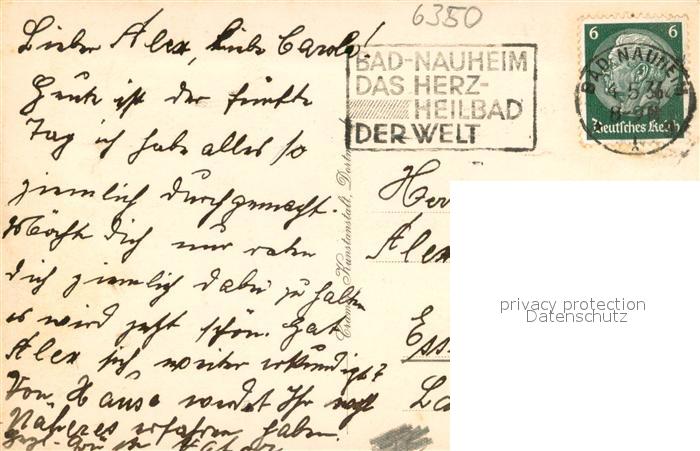 6350
Lieber Alex, liebe Carola!
Heute ist der fünfte
Tag ich habe alles so
ziemlich durchgemacht.
Möcht Dich nur raten
dich ziemlich dabei zu halten
es wird jetzt schön. Hat
Alex sich weiter erkundigt?
Von Hause werdet Ihr wohl
Näheres erfahren haben.
BAD-NAUHEIM
DAS HERZ-
HEILBAD
DER WELT
6 6
Deutsches Reich
BAD-NAUHEIM
Cramers Kunstanstalt, Dortmund
Her
Alex
Ess
privacy protection
Datenschutz